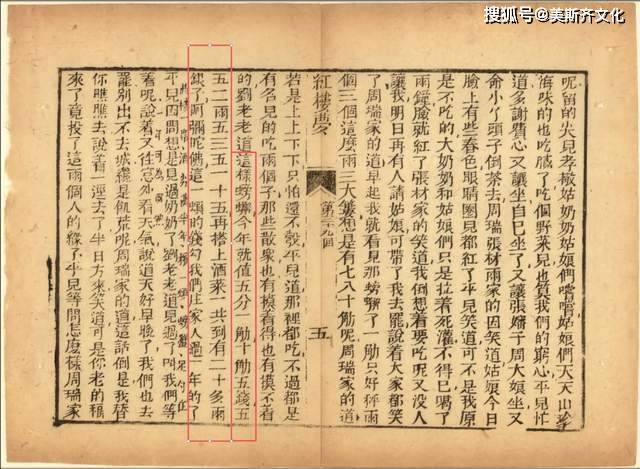 搜狐号@美斯齐文化
呢留的尖兒孝敬姑奶奶姑娘們嚐嚐姑娘們天天山珍
海味的也吃膩了吃個野菜兒也算我們的窮心平兒忙
道多謝費心又讓坐自己坐了又讓張嬸子周大娘坐又
命小丫頭子倒茶去周瑞張材兩家的因笑道姑娘今日
臉上有些春色眼睛圈兒都紅了平兒笑道可不是我原
是不吃的大奶奶和姑娘們只是拉着死灌不得已喝了
兩鍾臉就紅了張材家的笑道我倒想着要吃呢又没人
讓我明日再有人請姑娘可帶了我去罷說着大家都笑
了周瑞家的道早起我就看見那螃蟹了一觔只好秤兩
個三個這麼兩三大簍想是有七八十觔呢周瑞家的道
紅樓夢
第三十九回
五
若是上上下下只怕還不彀平兒道那裡都吃不過都是
有名兒的吃兩個子那些散衆也有摸着得的也有摸不着
的劉老老道這樣螃蟹今年就值五分一觔十觔五錢五
五二兩五三五一十五再搭上酒菜一共到有二十多兩
銀子阿彌陀佛這一頓的錢勾我們庄家人過一年的了
平兒因問想是見過奶奶了劉老老道見過了叫我們等
着呢說着又往窓外看天氣說道天好早晚了我們也去
罷別出不去城纔是飢荒呢周瑞家的道這話倒是我替
你瞧瞧去說着一逕去了半日方來笑道可是你老的福
來了竟投了這兩個人的緣了平兒等問怎麼樣周瑞家